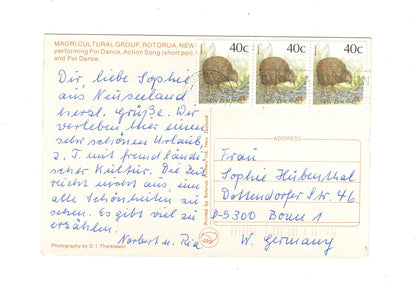 MAORI CULTURAL GROUP, ROTORUA, NEW
performing Poi Dance, Action Song (short poi),
and Poi Dance.
40c
40c
40c
NEW ZEALAND
NEW ZEALAND
NEW ZEALAND
Dir, liebe Sophie,
aus Neuseeland
herzl. Grüße. Wir
verleben hier einen
sehr schönen Urlaub,
z. T. mit fremdländi-
scher Kultur. Die Zeit
reicht nicht aus, um
alle Schönheiten zu
sehen. Es gibt viel zu
erzählen.
Norbert u. Ria
Photography by D. I. Thorkleson
ADDRESS
Frau
Sophie Hübenthal
Dottendorfer Str. 46
D-5300 Bonn 1
W. Germany